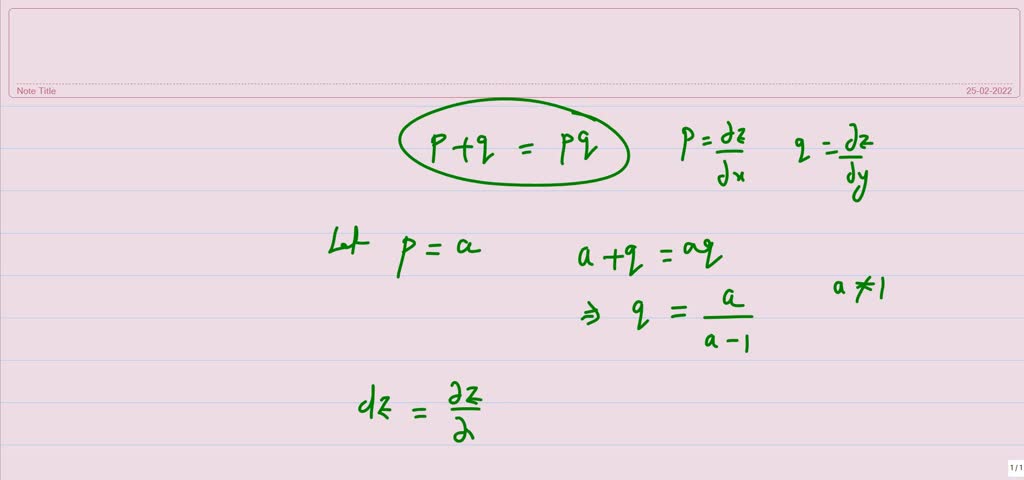 Note Title 25-02-2022
p+q = pq p = ∂z/∂x q = ∂z/∂y
Let p = a a + q = aq
⇒ q = a/(a-1) a ≠ 1
dz = ∂z/∂
1 / 1